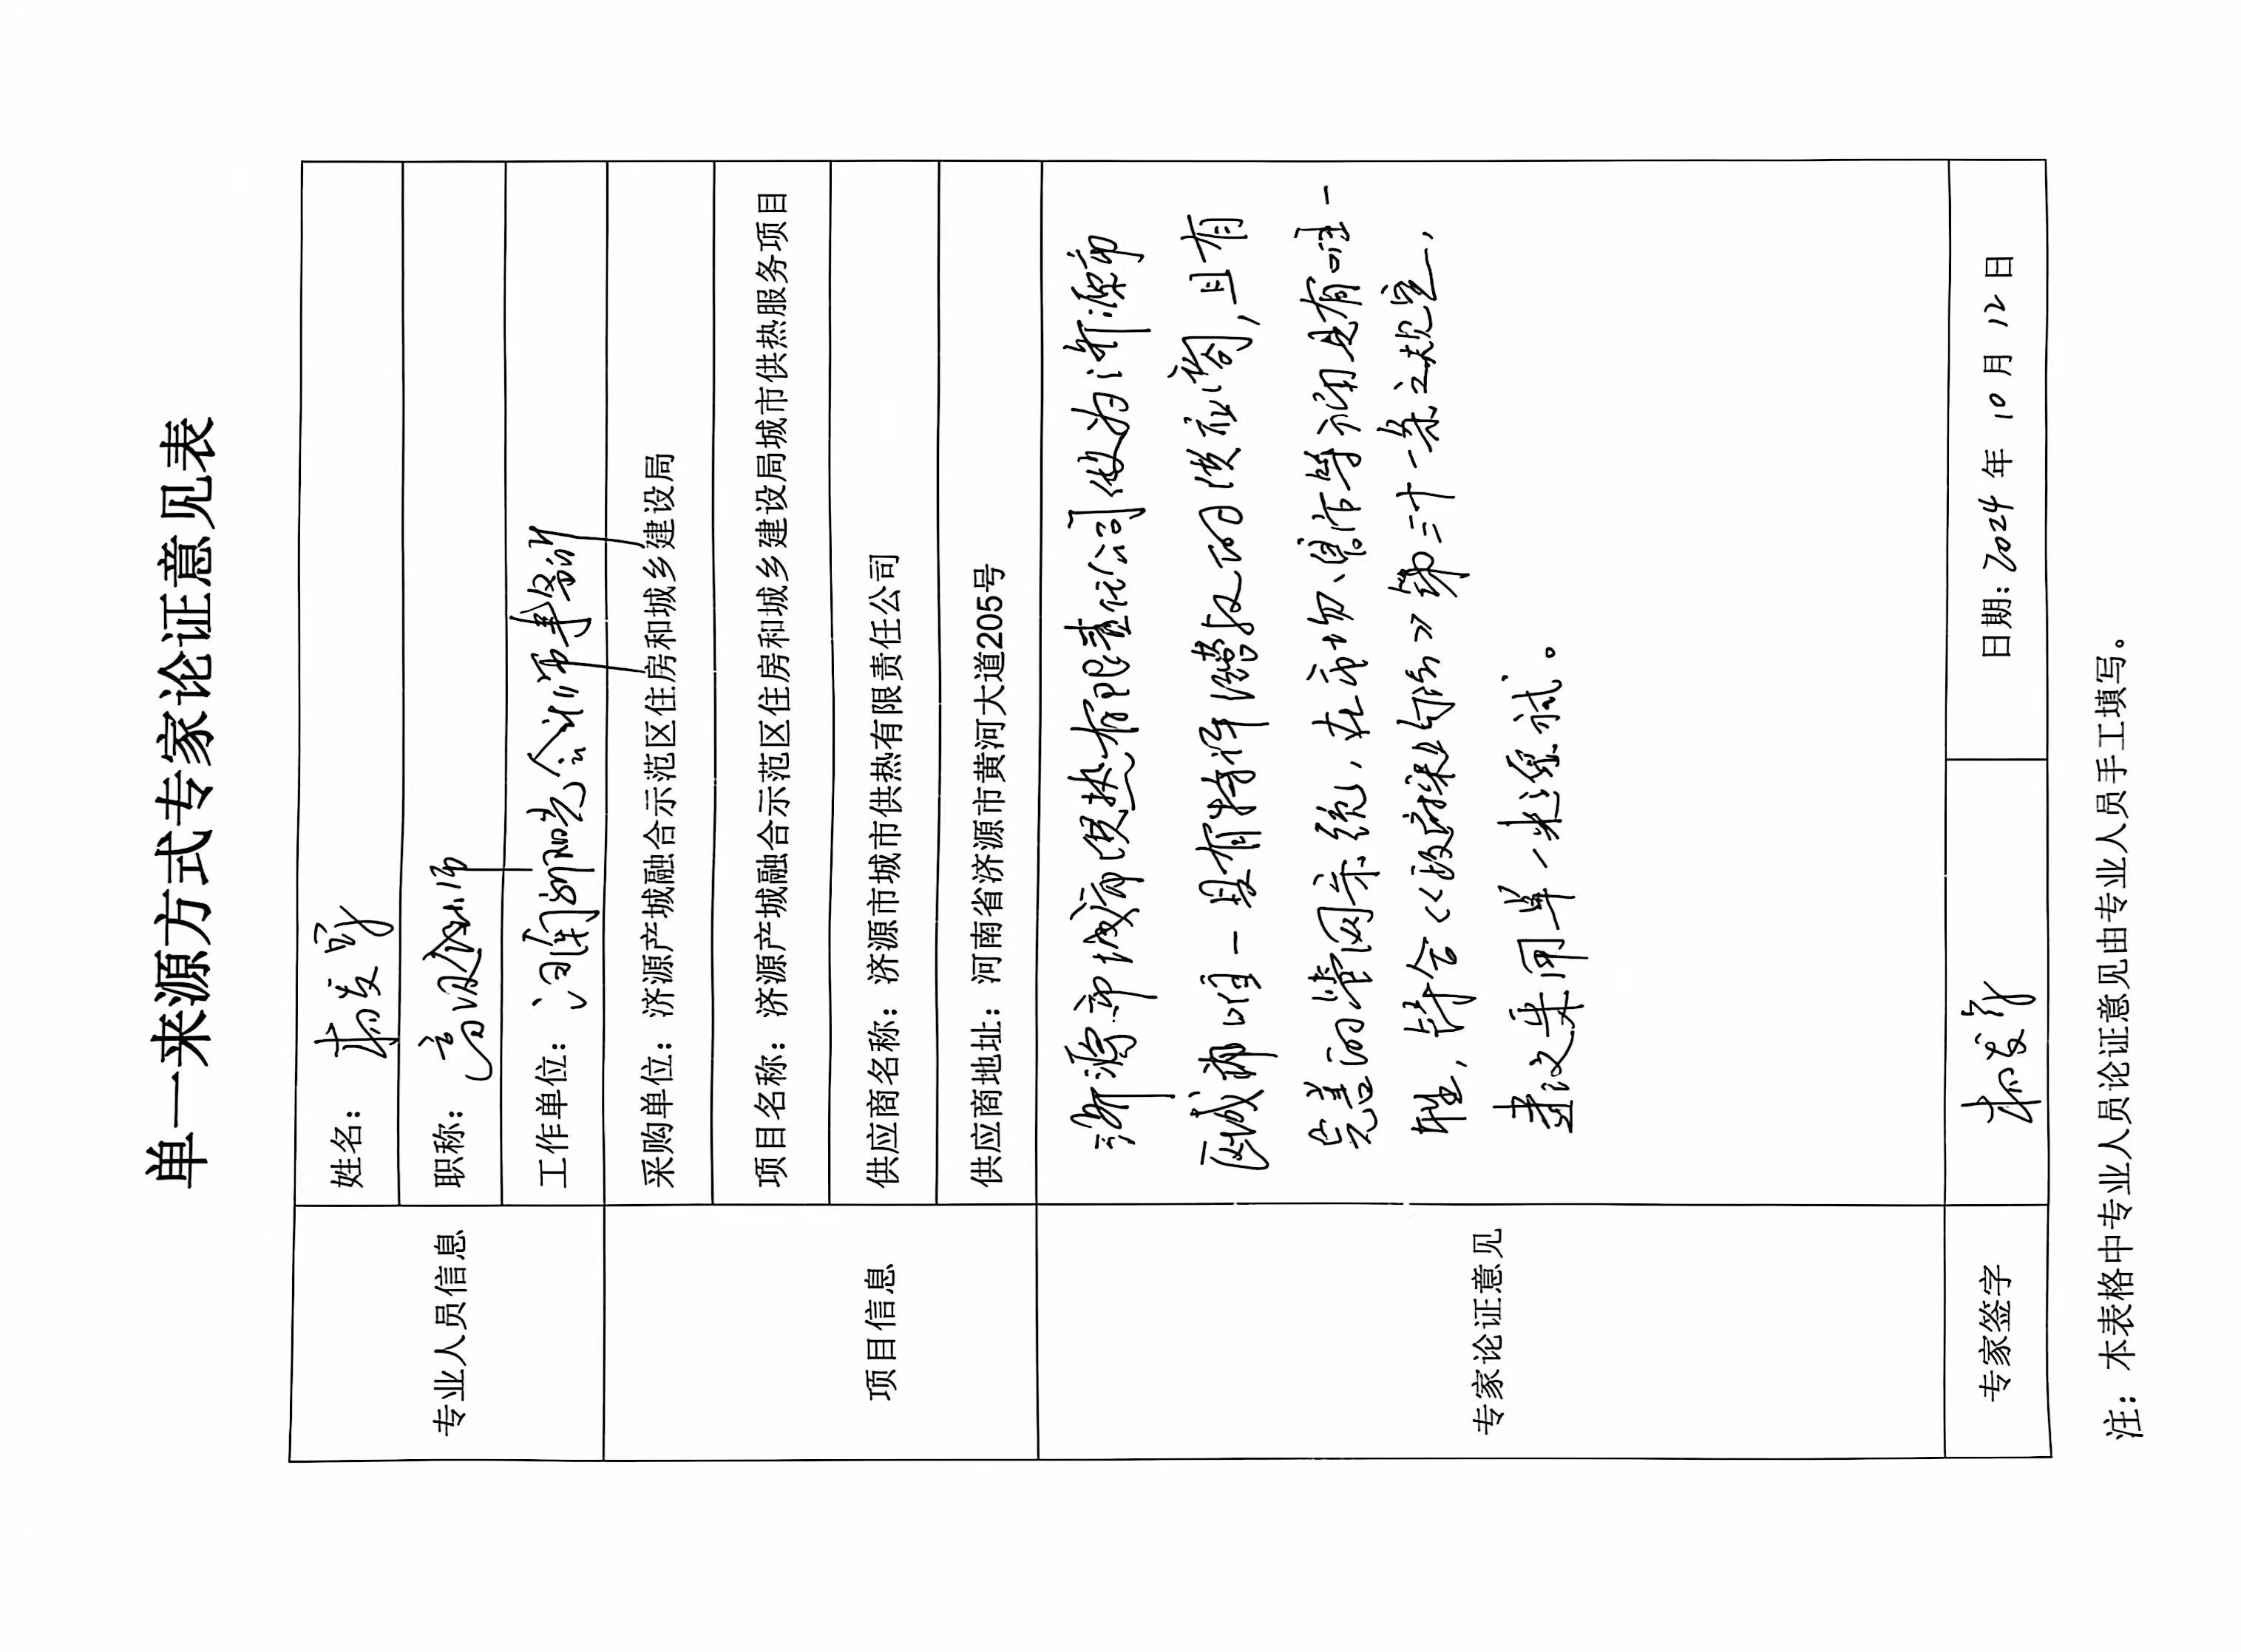 单一来源方式专家论证意见表
专业人员信息
姓名：
职称：高级会计师
工作单位：会计师事务所
项目信息
采购单位：济源产城融合示范区住房和城乡建设局
项目名称：济源产城融合示范区住房和城乡建设局城市供热服务项目
供应商名称：济源市城市供热有限责任公司
供应商地址：河南省济源市黄河大道205号
专家论证意见
济源市城市供热有限责任公司做为济源市
区域内唯一具有特许经营权的供应商，且有
完善的管网系统，在市场、等方面具有唯一
性，符合《政府采购法》第三十一条之规定，
建议采用单一来源方式。
专家签字
日期：2024年10月12日
注：本表格中专业人员论证意见由专业人员手工填写。